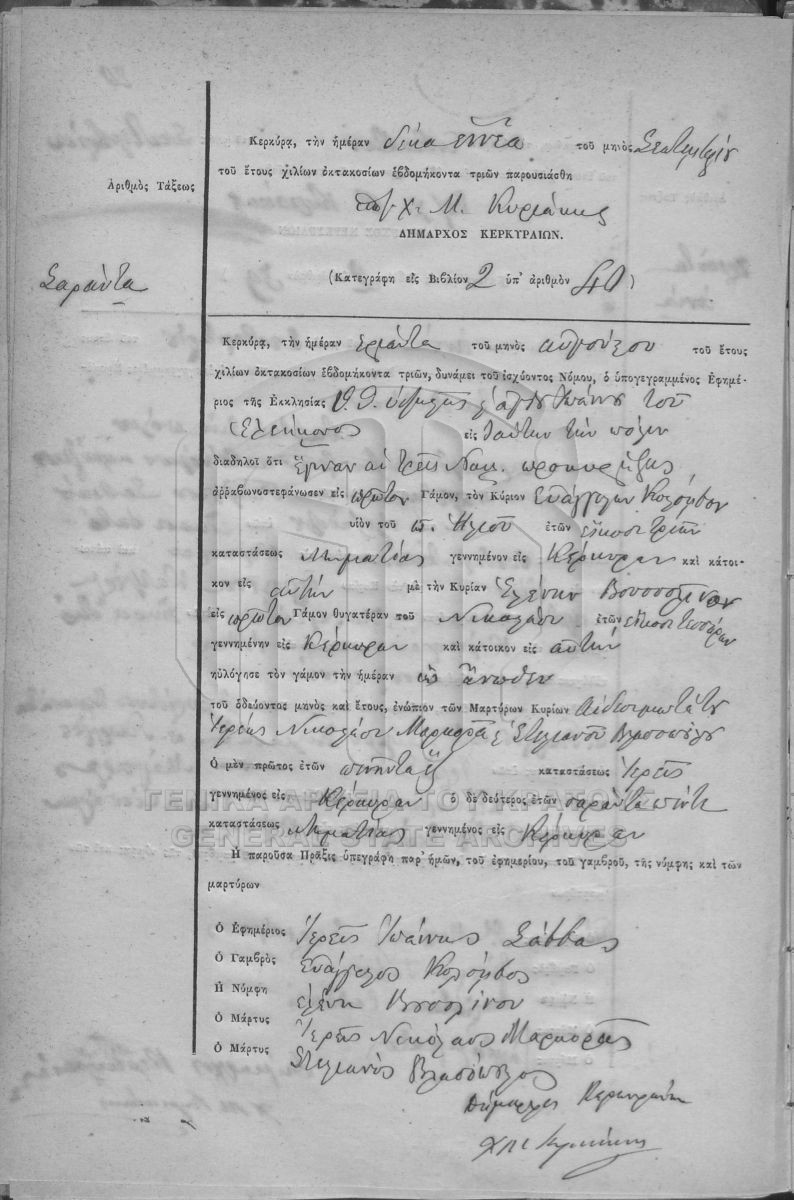 Κερκύρᾳ, τὴν ἡμέραν δέκα ἐννέα τοῦ μηνὸς Σεπτεμβρίου
τοῦ ἔτους χιλίων ὀκτακοσίων ἑβδομήκοντα τριῶν παρουσιάσθη
Ἀριθμὸς Τάξεως
Χ. Μ. Κυριάκης
ΔΗΜΑΡΧΟΣ ΚΕΡΚΥΡΑΙΩΝ.
(Κατεγράφη εἰς Βιβλίον 2 ὑπ' ἀριθμὸν 40)
Σαράντα
Κερκύρᾳ, τὴν ἡμέραν τριάντα τοῦ μηνὸς αὐγούστου τοῦ ἔτους
χιλίων ὀκτακοσίων ἑβδομήκοντα τριῶν, δυνάμει τοῦ ἰσχύοντος Νόμου, ὁ ὑπογεγραμμένος Ἐφημέ-
ριος τῆς Ἐκκλησίας ἁγίου Ἰωάννου τοῦ
Ἐλεήμονος εἰς ταύτην τὴν πόλιν
διαδηλοῖ ὅτι ἔγιναν αἱ τρεῖς προκηρύξεις
ἀῤῥαβωνοστεφάνωσεν εἰς πρῶτον Γάμον, τὸν Κύριον Εὐάγγελον Κολόμβον
υἱὸν τοῦ π. Ἠλιοῦ ἐτῶν εἴκοσι τριῶν
καταστάσεως κτηματίας γεννημένον εἰς Κέρκυραν καὶ κάτοι-
κον εἰς αὐτήν μὲ τὴν Κυρίαν Ἑλένην
εἰς πρῶτον Γάμον θυγατέραν τοῦ Νικολάου ἐτῶν εἴκοσι τεσσάρων
γεννημένην εἰς Κέρκυραν καὶ κάτοικον εἰς αὐτήν
ηὐλόγησε τὸν γάμον τὴν ἡμέραν ὡς ἄνωθεν
τοῦ ὁδεύοντος μηνὸς καὶ ἔτους, ἐνώπιον τῶν Μαρτύρων Κυρίων Αἰδεσιμωτάτου
Ἱερέως Νικολάου Μαρμορᾶ Στυλιανοῦ Βλασοπούλου
Ὁ μὲν πρῶτος ἐτῶν πενήντα ἕξ καταστάσεως Ἱερεὺς
γεννημένος εἰς Κέρκυραν ὁ δὲ δεύτερος ἐτῶν σαράντα πέντε
καταστάσεως κτηματίας γεννημένος εἰς Κέρκυραν
Ἡ παροῦσα Πρᾶξις ὑπεγράφη παρ' ἡμῶν, τοῦ ἐφημερίου, τοῦ γαμβροῦ, τῆς νύμφης καὶ τῶν
μαρτύρων
Ὁ Ἐφημέριος Ἱερεὺς Ἰωάννης Σάββας
Ὁ Γαμβρὸς Εὐάγγελος Κολόμβος
Ἡ Νύμφη ἑλένη
Ὁ Μάρτυς Ἱερεὺς Νικόλαος Μαρμορᾶς
Ὁ Μάρτυς Στυλιανὸς Βλασόπουλος
Δήμαρχος Κερκυραίων
Χ Μ Κυριάκης
ΓΕΝΙΚΑ ΑΡΧΕΙΑ ΤΟΥ ΚΡΑΤΟΥΣ
GENERAL STATE ARCHIVES